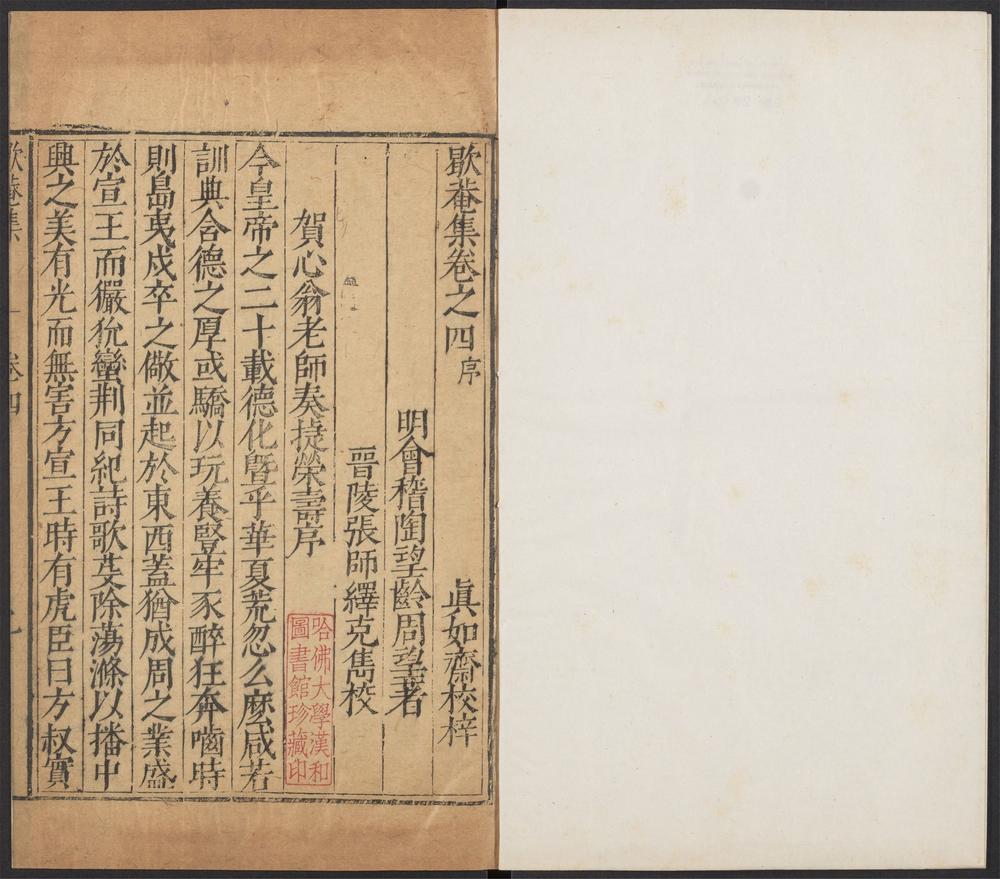 歇菴集卷之四 序 真如齋校梓
明會稽陶望齡周望著
晉陵張師繹克雋校
賀心翁老師奏捷榮壽序
今皇帝之二十載德化暨乎華夏荒忽么麽咸若
訓典含德之厚或驕以玩養豎牢豕醉狂奔嚙時
則島夷戍卒之儆並起於東西蓋猶成周之業盛
於宣王而玁狁蠻荆同紀詩歌芟除蕩滌以播中
興之美有光而無害方宣王時有虎臣曰方叔實
歇菴集 卷四
哈佛大學漢和
圖書館珍藏印